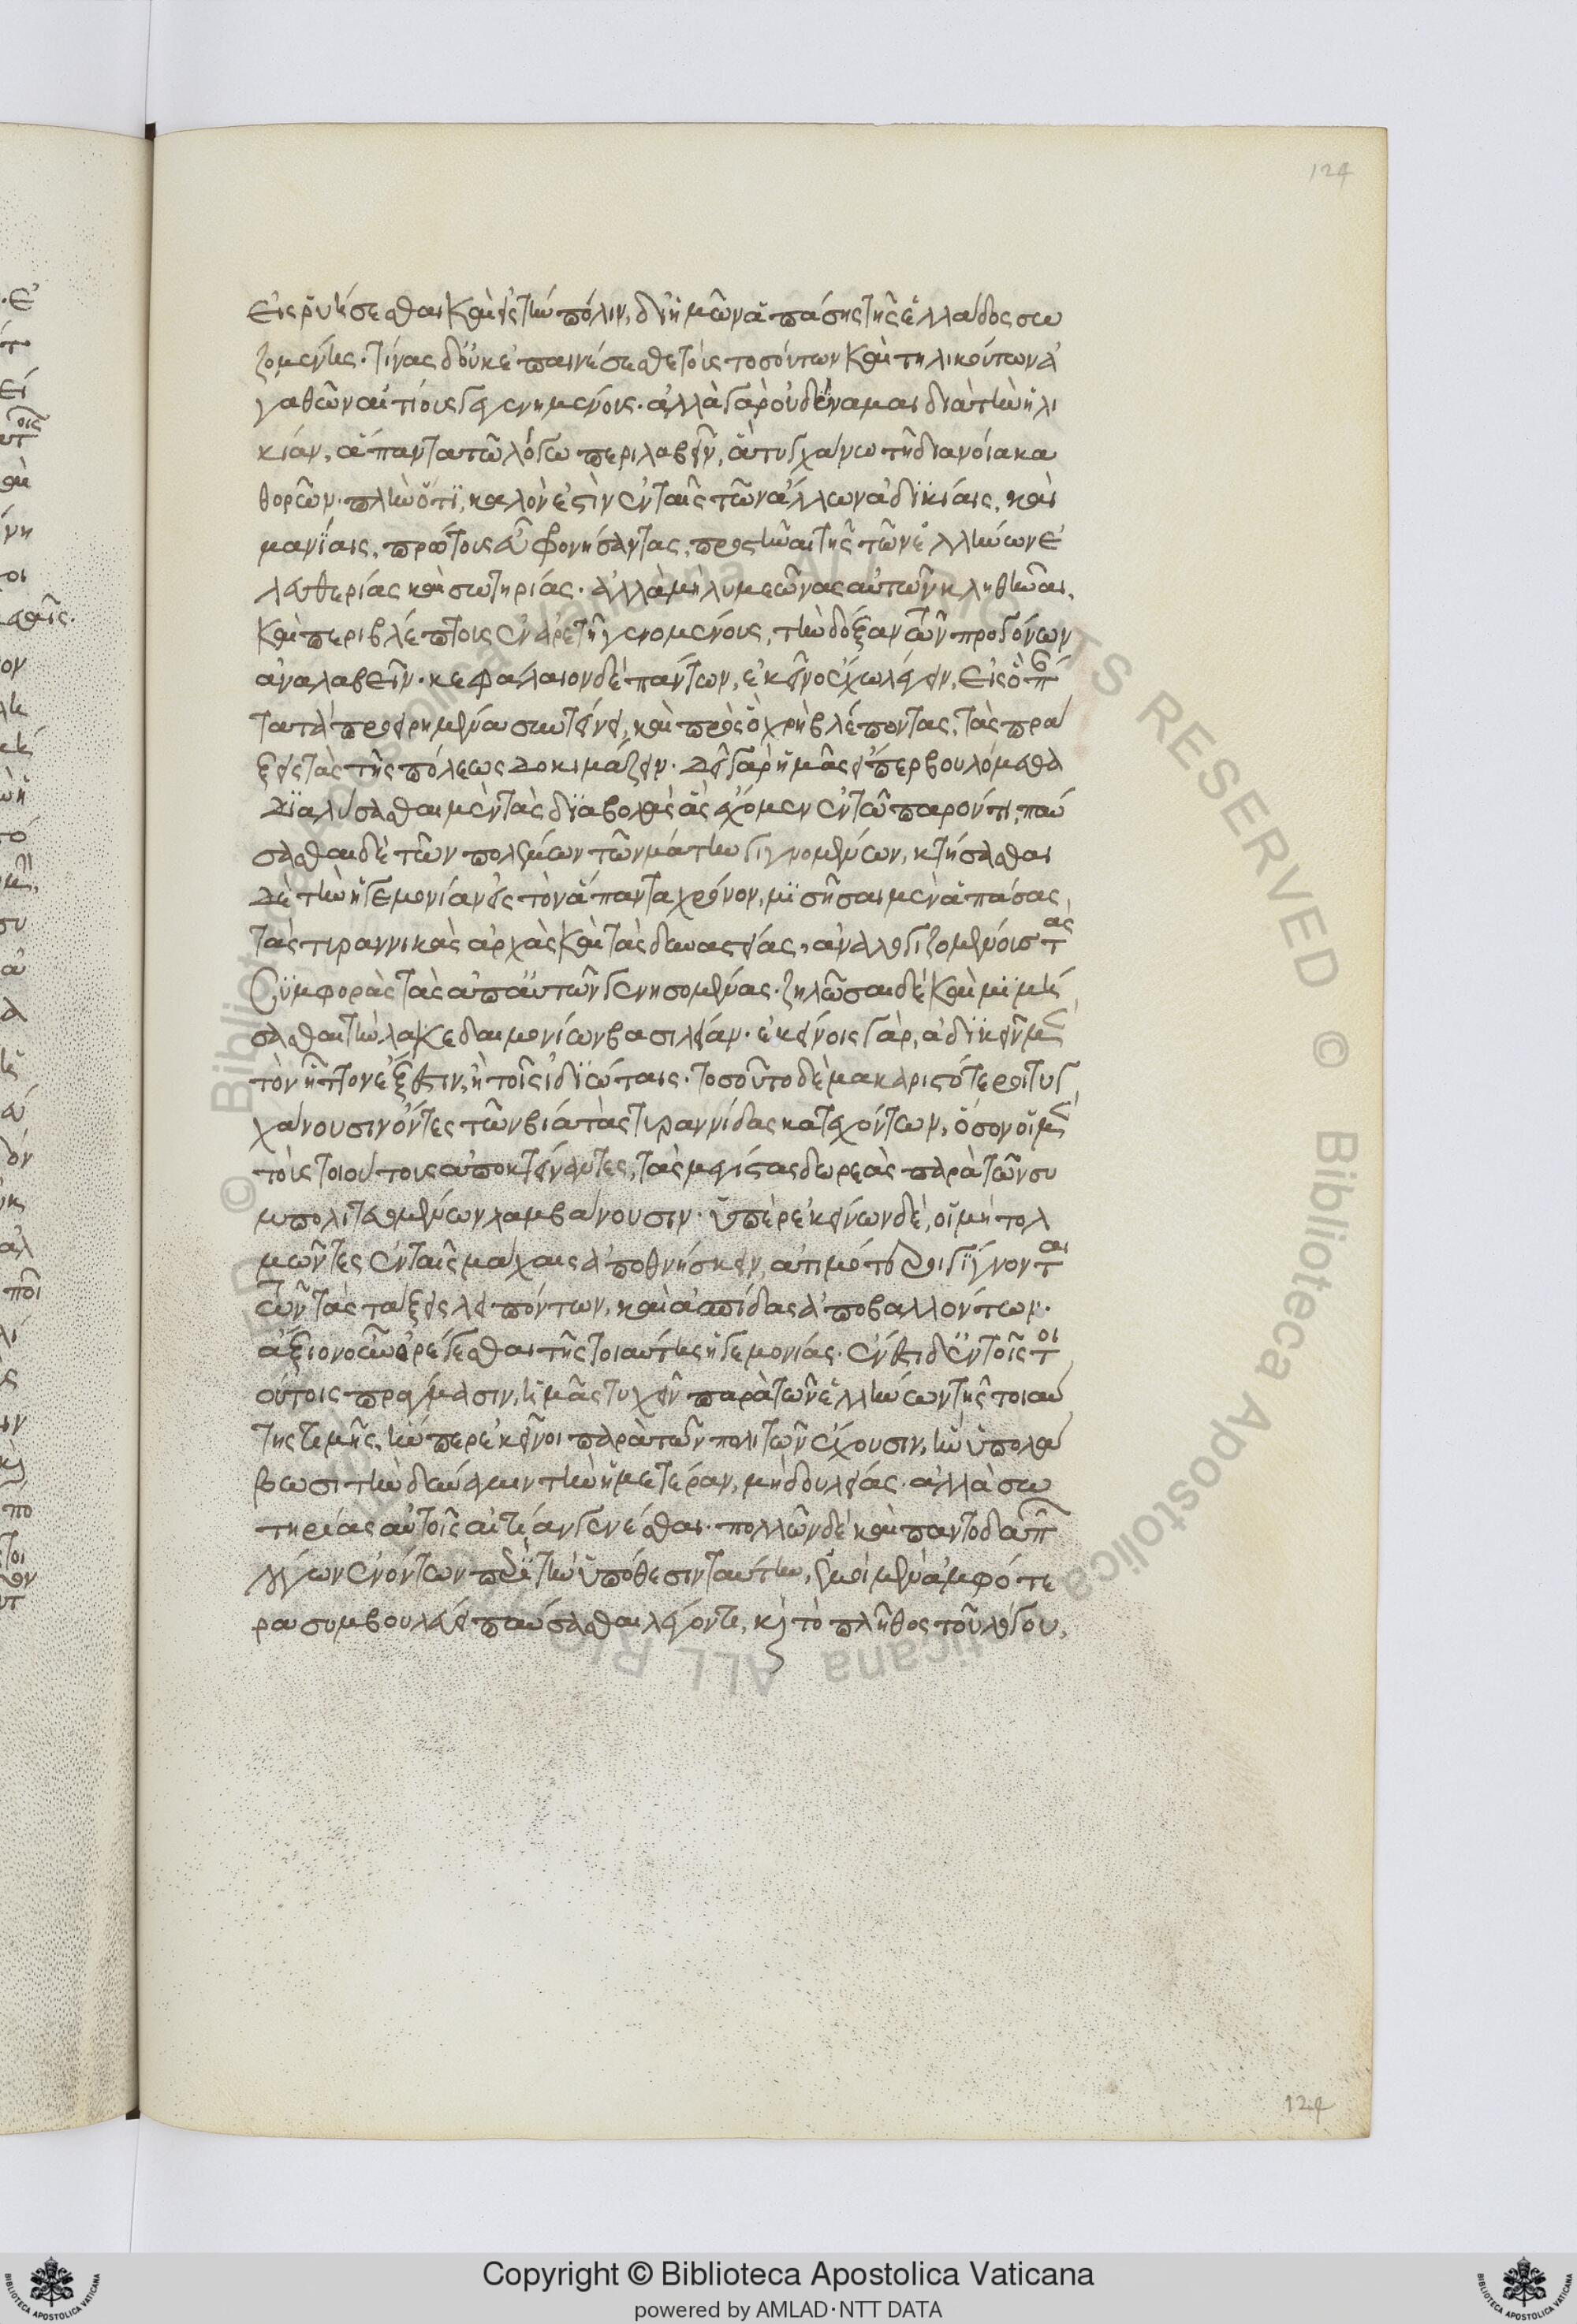 124
εἰρύσεσθαι καὶ εἰς τὴν πόλιν, δι' ἡμῶν ἁπάσης τῆς ἑλλάδος σω
ζομένης. τίνας δ' οὐκ ἐπαινέσεσθε τοῖς τοσούτων καὶ τηλικούτων ἀ
γαθῶν αἰτίοις γεγενημένοις. ἀλλὰ γὰρ οὐ δύναμαι διὰ τὴν ἡλι
κίαν, ἅπαντα τῶ λόγω περιλαβεῖν, ἃ τυγχάνω τῆ διανοία κα
θορῶν. πλὴν ὅτι, καλόν ἐστιν ἐν ταῖς τῶν ἄλλων ἀδικίαις, καὶ
μανίαις, πρώτοις εὖ φρονήσαντας, προστῆναι τῆς τῶν ἑλλήνων ἐ
λευθερίας καὶ σωτηρίας. ἀλλὰ μὴ λυμεῶνας αὐτῶν κληθῆναι,
καὶ περιβλέπτοις ἐν ἀρετῆ γενομένους, τὴν δόξαν τῶν προγόνων
ἀναλαβεῖν. κεφάλαιον δὲ πάντων, ἐκεῖνο ἔχω λέγειν, εἰς ὃ π
τα τὰ προειρημένα συντείνει, καὶ πρὸς ὃ χρὴ βλέποντας, τὰς πρά
ξεις τὰς τῆς πόλεως δοκιμάζειν. δεῖ γὰρ ἡμᾶς εἴπερ βουλόμεθα
διαλύσασθαι μὲν τὰς διαβολὰς ἃς ἔχομεν ἐν τῶ παρόντι, παύ
σασθαι δὲ τῶν πολέμων τῶν μάτην γιγνομένων, κτήσασθαι
δὲ τὴν ἡγεμονίαν εἰς τὸν ἅπαντα χρόνον, μισῆσαι μὲν ἁπάσας
τὰς τυραννικὰς ἀρχὰς καὶ τὰς δυναστείας, ἀναλογιζομένοις τὰς
συμφορὰς τὰς ἀπ' αὐτῶν γενησομένας. ζηλῶσαι δὲ καὶ μιμή
σασθαι τὴν λακεδαιμονίων βασιλείαν. ἐκείνοις γὰρ, ἀδικεῖν μὲν
τὸν ἧττον ἔξεστιν, ἢ τοῖς ἰδιώταις. τοσοῦτο δὲ μακαριστότεροι τυγ
χάνουσιν ὄντες τῶν βία τὰς τυραννίδας κατεχόντων, ὅσον οἱ μὲν
τοὺς τοιούτους ἀποκτείναντες, τὰς μεγίστας δωρεὰς παρὰ τῶν συ
μπολιτευομένων λαμβάνουσιν. ὑπὲρ ἐκείνων δὲ, οἱ μὴ τολ
μῶντες ἐν ταῖς μάχαις ἀποθνήσκειν, ἀτιμότεροι γίγνονται
τῶν τὰς τάξεις λειπόντων, καὶ ἀσπίδας ἀποβαλλόντων.
ἄξιον οὖν ὀρέγεσθαι τῆς τοιαύτης ἡγεμονίας. ἔνεστι δ' ἐν τοῖς τοι
ούτοις πράγμασιν, ἡμᾶς τυχεῖν παρὰ τῶν ἑλλήνων τῆς τοιαύ
της τιμῆς, ἥνπερ ἐκεῖνοι παρὰ τῶν πολιτῶν ἔχουσιν, ἢν ὑπολά
βωσι τὴν δύναμιν τὴν ἡμετέραν, μὴ δουλείας. ἀλλὰ σω
τηρίας αὐτοῖς αἰτίαν γενέσθαι. πολλῶν δὲ καὶ παντοδαπῶν
λόγων ἐνόντων περὶ τὴν ὑπόθεσιν ταύτην, ἐμοὶ μὲν ἀμφότε
ρα συμβουλεύει παύσασθαι λέγοντι, καὶ τὸ πλῆθος τοῦ λόγου,
124
© Biblioteca Apostolica Vaticana ALL RIGHTS RESERVED
Copyright © Biblioteca Apostolica Vaticana
powered by AMLAD·NTT DATA
BIBLIOTECA APOSTOLICA VATICANA
BIBLIOTECA APOSTOLICA VATICANA